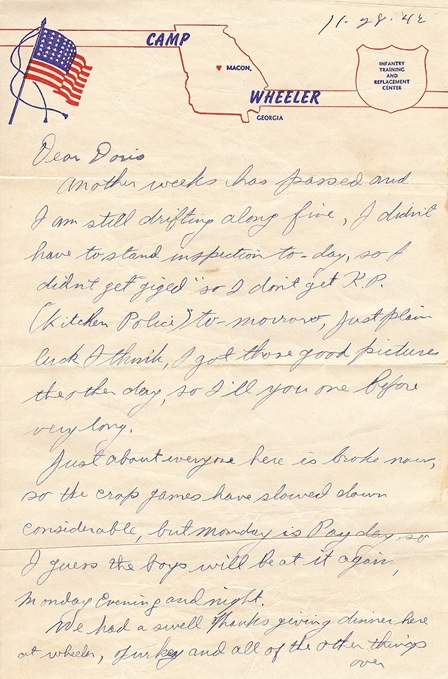 11-28-42
CAMP
MACON,
WHEELER
GEORGIA
INFANTRY
TRAINING
AND
REPLACEMENT
CENTER
Dear Doris
Another weeks has passed and
I am still drifting along fine, I didn't
have to stand inspection to-day, so I
didn't get giged" so I don't get K.P.
(Kitchen Police) to-morrow, just plain
luck I think, I got those good pictures
the other day, so I'll you one before
very long.
Just about everyone here is broke now,
so the crap games have slowed down
considerable, but monday is Payday, so
I guess the boys will be at it again,
Monday Evening and night.
We had a swell Thanks giving dinner here
at wheeler, Turkey and all of the other things
over